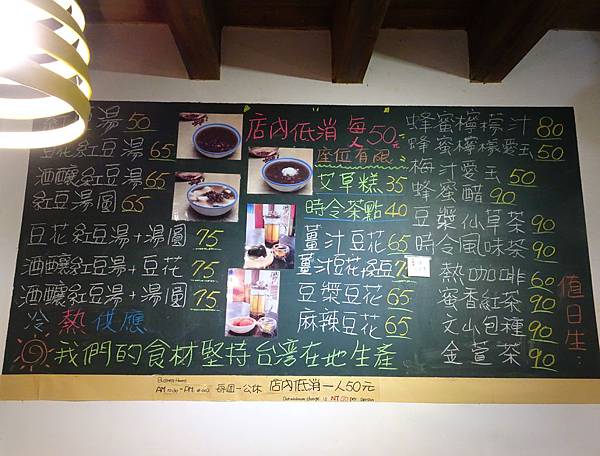 紅豆湯 50
豆花紅豆湯 65
酒釀紅豆湯 65
紅豆湯圓 65
豆花紅豆湯+湯圓 75
酒釀紅豆湯+豆花 75
酒釀紅豆湯+湯圓 75
冷 熱 供應
店內低消 每人50元
座位有限
艾草糕 35
時令茶點 40
薑汁豆花 65
薑汁豆花綠豆
豆漿豆花 65
麻辣豆花 65
蜂蜜檸檬汁 80
蜂蜜檸檬愛玉 50
梅汁愛玉 50
蜂蜜醋 90
豆漿仙草茶 90
時令風味茶 90
熱咖啡 60
蜜香紅茶 90
文山包種 90
金萱茶 90
值日生:
我們的食材堅持台灣在地生產
Business Hours
每週一公休
店內低消一人50元
Our minimum charge is NT 50 per person